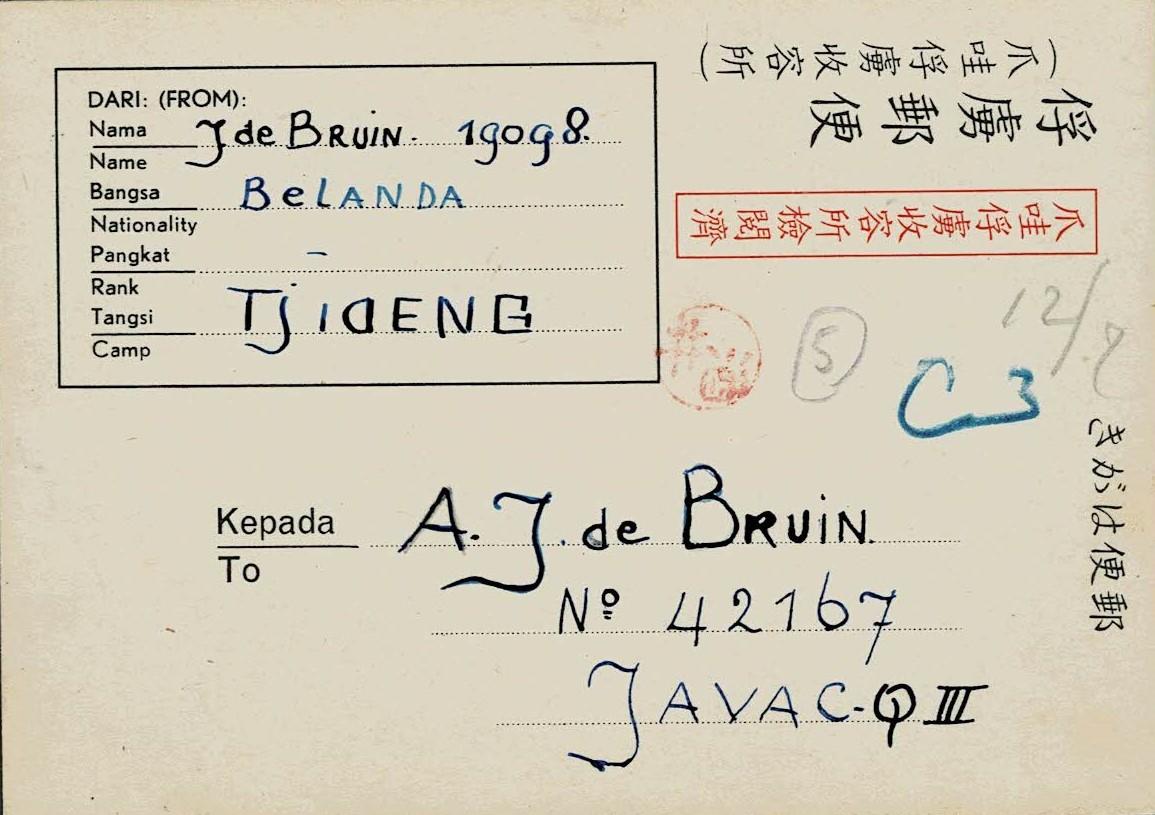 (爪哇俘虜收容所)
俘虜郵便
爪哇俘虜收容所檢閲濟
郵便はがき
DARI: (FROM):
Nama J de BRUIN. 19098.
Name
Bangsa BeLANDA
Nationality
Pangkat –
Rank
Tangsi TJIDENG
Camp
5
C 3
Kepada A. J. de BRUIN.
To
Nº 42167
JAVA C-Q III